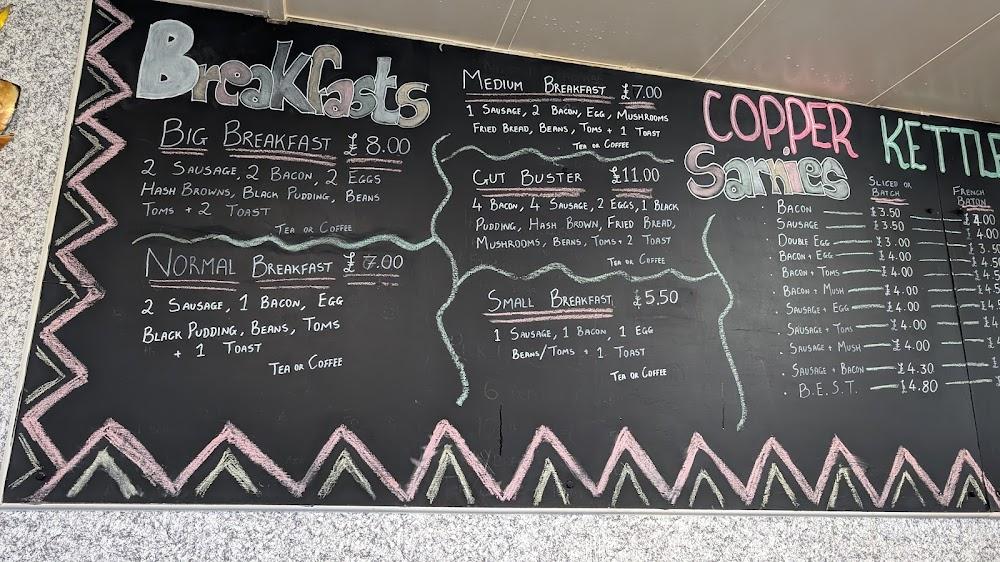 Breakfasts
BIG BREAKFAST £8.00
2 SAUSAGE, 2 BACON, 2 EGGS
HASH BROWNS, BLACK PUDDING, BEANS
TOMS + 2 TOAST
TEA OR COFFEE
NORMAL BREAKFAST £7.00
2 SAUSAGE, 1 BACON, EGG
BLACK PUDDING, BEANS, TOMS
+ 1 TOAST
TEA OR COFFEE
MEDIUM BREAKFAST £7.00
1 SAUSAGE, 2 BACON, EGG, MUSHROOMS
FRIED BREAD, BEANS, TOMS + 1 TOAST
TEA OR COFFEE
GUT BUSTER £11.00
4 BACON, 4 SAUSAGE, 2 EGGS, 1 BLACK
PUDDING, HASH BROWN, FRIED BREAD,
MUSHROOMS, BEANS, TOMS + 2 TOAST
TEA OR COFFEE
SMALL BREAKFAST £5.50
1 SAUSAGE, 1 BACON, 1 EGG
BEANS/TOMS + 1 TOAST
TEA OR COFFEE
COPPER KETTLE
Sarnies
SLICED OR
BATCH
FRENCH
BATON
· BACON £3.50 £4.00
· SAUSAGE £3.50 £4.00
· DOUBLE EGG £3.00 £3.50
· BACON + EGG £4.00 £4.50
· BACON + TOMS £4.00
· BACON + MUSH £4.00
· SAUSAGE + EGG £4.00
· SAUSAGE + TOMS £4.00
· SAUSAGE + MUSH £4.00
· SAUSAGE + BACON £4.30
· B.E.S.T. £4.80